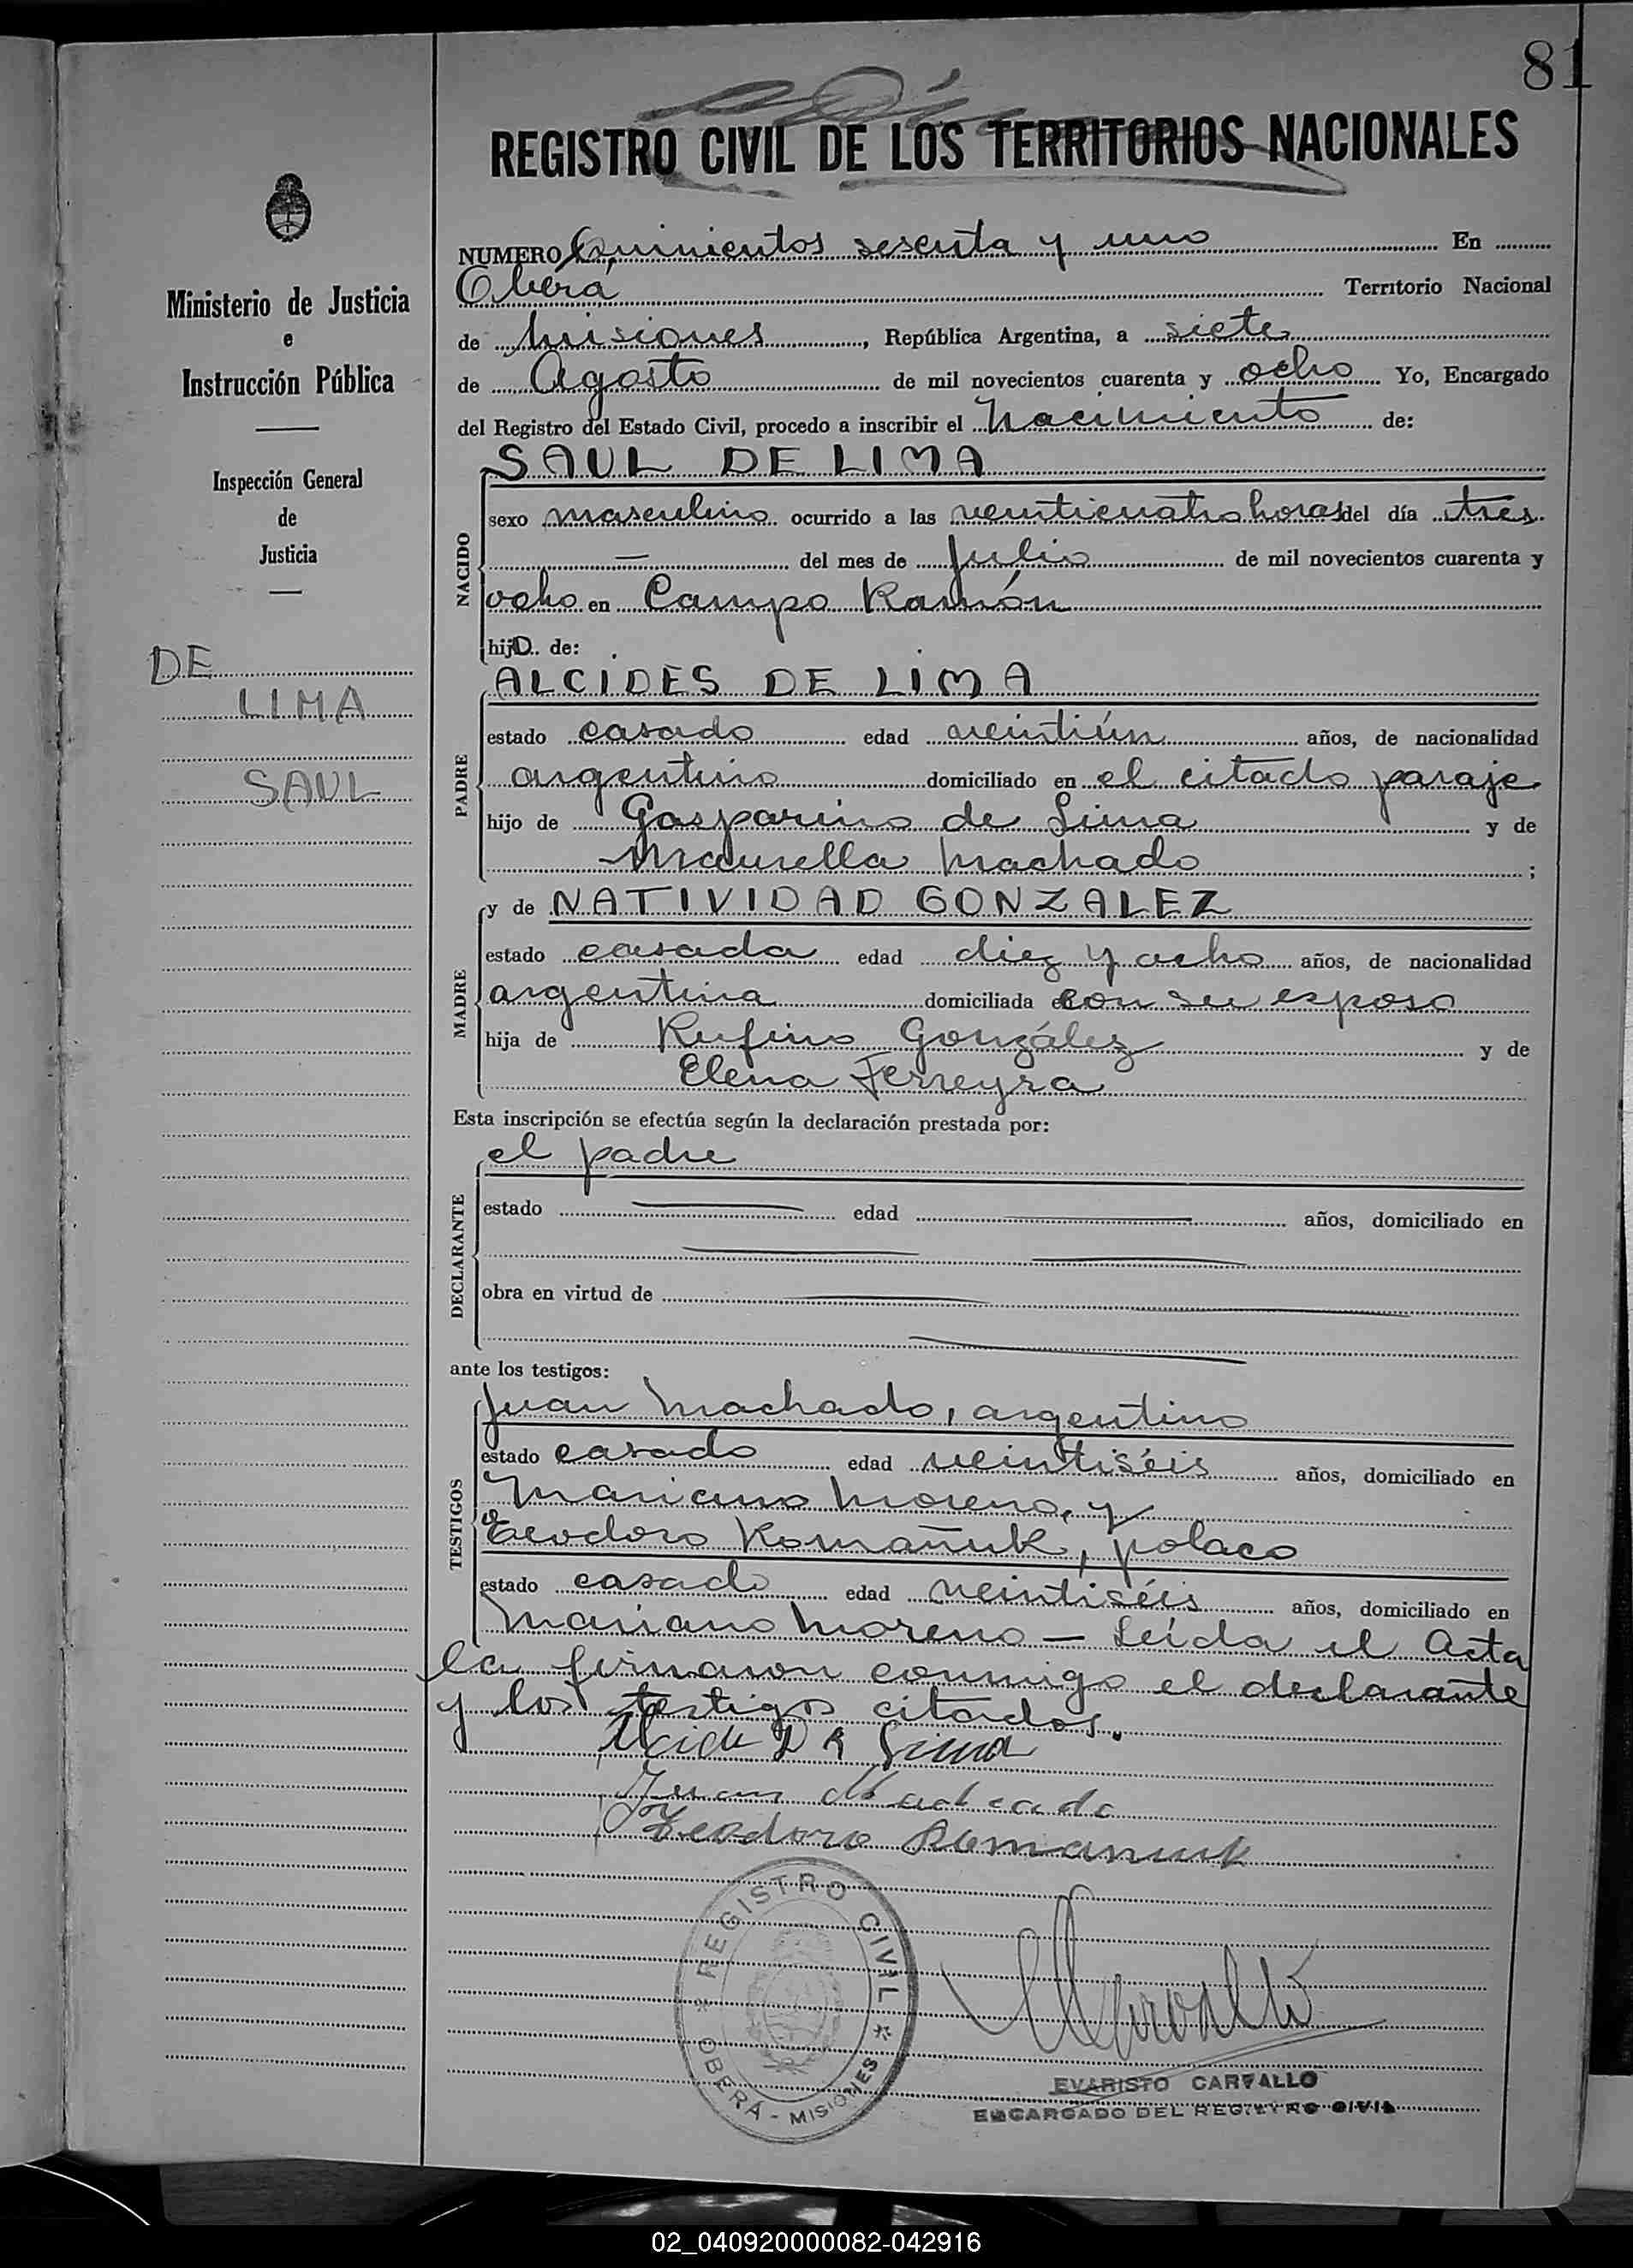 81
REGISTRO CIVIL DE LOS TERRITORIOS NACIONALES
Ministerio de Justicia
e
Instrucción Pública
Inspección General
de
Justicia
DE
LIMA
SAUL
NUMERO Quinientos sesenta y uno En
Oberá Territorio Nacional
de Misiones, República Argentina, a siete
de Agosto de mil novecientos cuarenta y ocho Yo, Encargado
del Registro del Estado Civil, procedo a inscribir el Nacimiento de:
NACIDO
SAUL DE LIMA
sexo masculino ocurrido a las veinticuatro horas del día tres
— del mes de Julio de mil novecientos cuarenta y
ocho en Campo Ramón
hijo de:
PADRE
ALCIDES DE LIMA
estado casado edad veintiún años, de nacionalidad
argentino domiciliado en el citado paraje
hijo de Gasparino de Lima y de
Maurella Machado ;
MADRE
y de NATIVIDAD GONZALEZ
estado casada edad diez y ocho años, de nacionalidad
argentina domiciliada con su esposo
hija de Rufino González y de
Elena Ferreyra
Esta inscripción se efectúa según la declaración prestada por:
DECLARANTE
el padre
estado edad años, domiciliado en
obra en virtud de
ante los testigos:
TESTIGOS
Juan Machado, argentino
estado casado edad veintiséis años, domiciliado en
Mariano Moreno, y
Teodoro Romañuk, polaco
estado casado edad veintiséis años, domiciliado en
Mariano Moreno — Leída el Acta
la firmaron conmigo el declarante
y los testigos citados.
Alcide De Lima
Juan Machado
Teodoro Romanuk
REGISTRO CIVIL
OBERÁ - MISIONES
EVARISTO CARVALLO
ENCARGADO DEL REGISTRO CIVIL
02_040920000082-042916